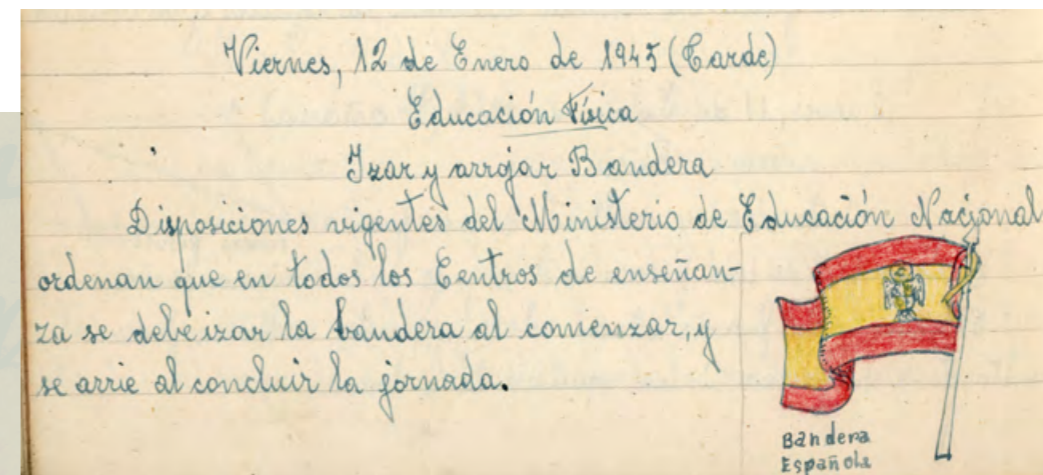 Viernes, 12 de Enero de 1945 (Tarde)
Educación Física
Izar y arrojar Bandera
Disposiciones vigentes del Ministerio de Educación Nacional
ordenan que en todos los Centros de enseñan-
za se debe izar la bandera al comenzar, y
se arrie al concluir la jornada.
Bandera
Española